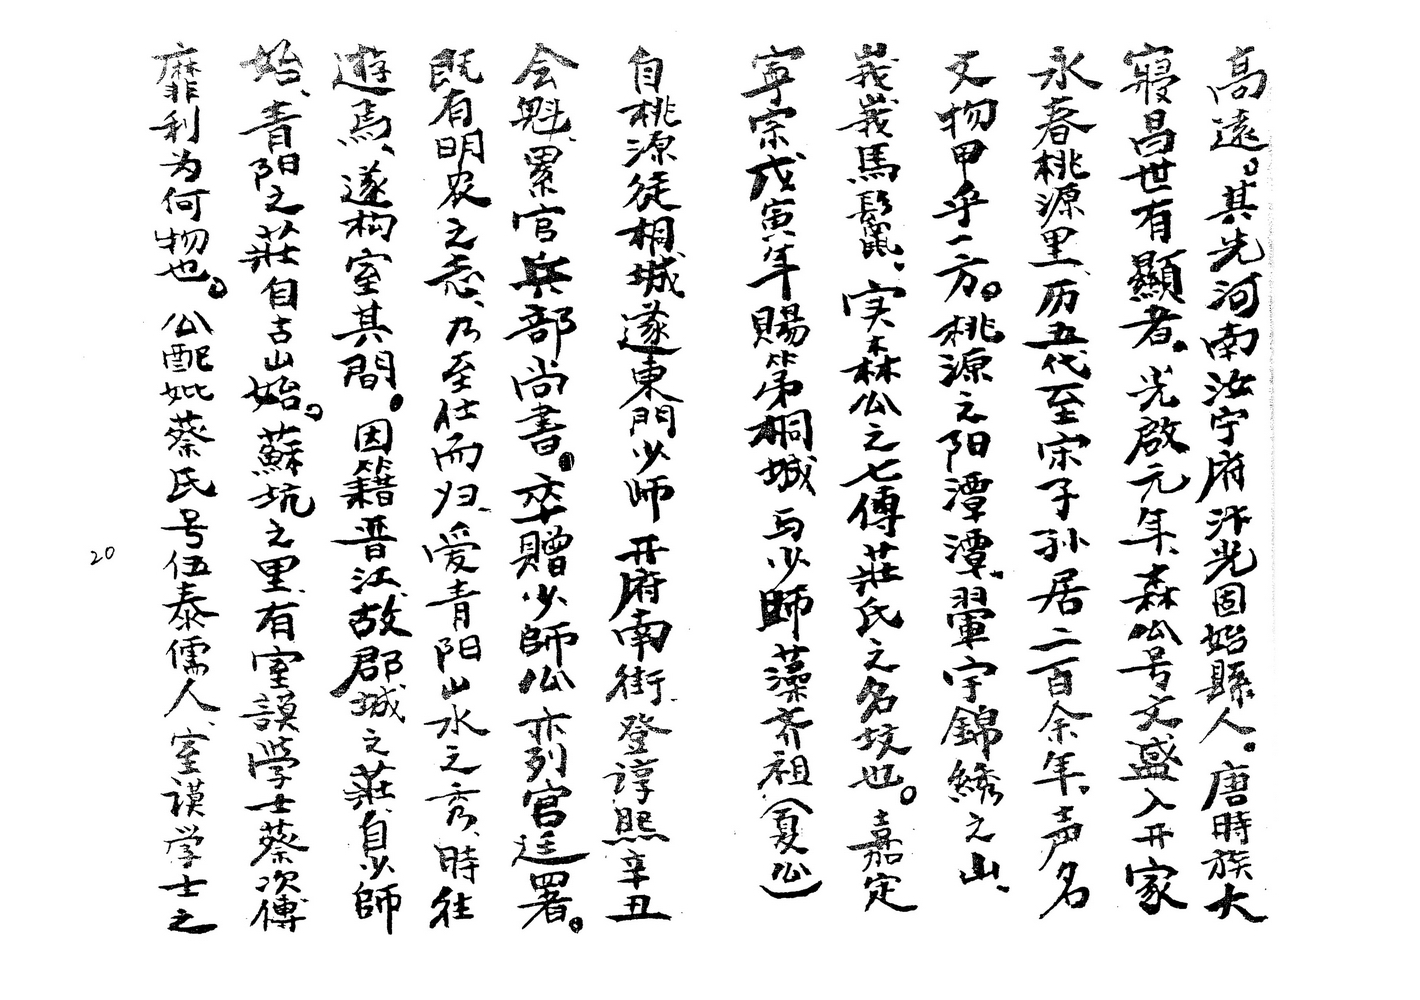 高遠。其先河南汝宁府汴光固始縣人。唐時族大
寢昌世有顯者。光啟元年、森公号文盛入开家
永春桃源里、历五代至宋子孙居二百余年、声名
文物甲乎一方。桃源之阳潭潭、翚宇錦綉之山、
峩峩馬鬣、实森公之七傅莊氏之名坟也。嘉定
寧宗戊寅年賜第桐城 与少師藻斉祖（夏公）
自桃源徒桐城遂東門少師开府南街、登諄熙辛丑
会魁、累官兵部尚書。卒贈少師公亦列宫廷署。
既有明农之志、乃至仕而归、爱青阳山水之秀、時往
遊焉、遂构室其間。因籍晋江、故郡城之莊、自少師
始、青阳之莊自古山始。蘇坑之里、有室謨学士蔡次傅
靡非利为何物也。公配妣蔡氏号伍泰儒人、室謨学士之
20